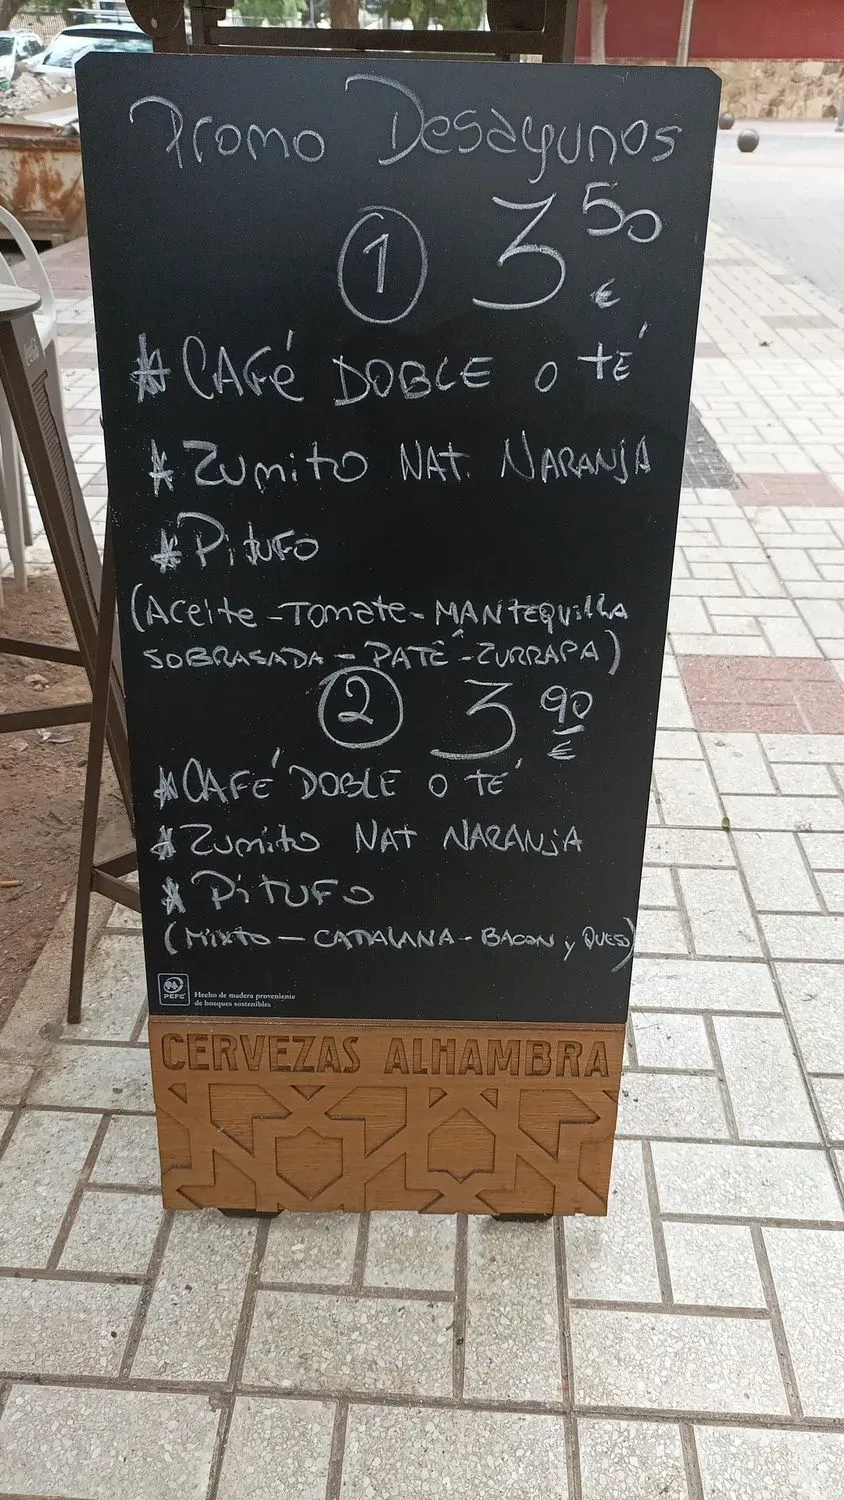 Promo Desayunos
1 3 50 €
* CAFé DOBLE o té
* Zumito NAT. NARANJA
* Pitufo
(Aceite - Tomate - MANTequilla
SOBRASADA - PATÉ - ZURRAPA)
2 3 90 €
* CAFÉ DOBLE o té
* Zumito NAT NARANJA
* PiTUFO
(MIXTO - CATALANA - BACON y QUESO)
PEFC
Hecho de madera proveniente
de bosques sostenibles
CERVEZAS ALHAMBRA